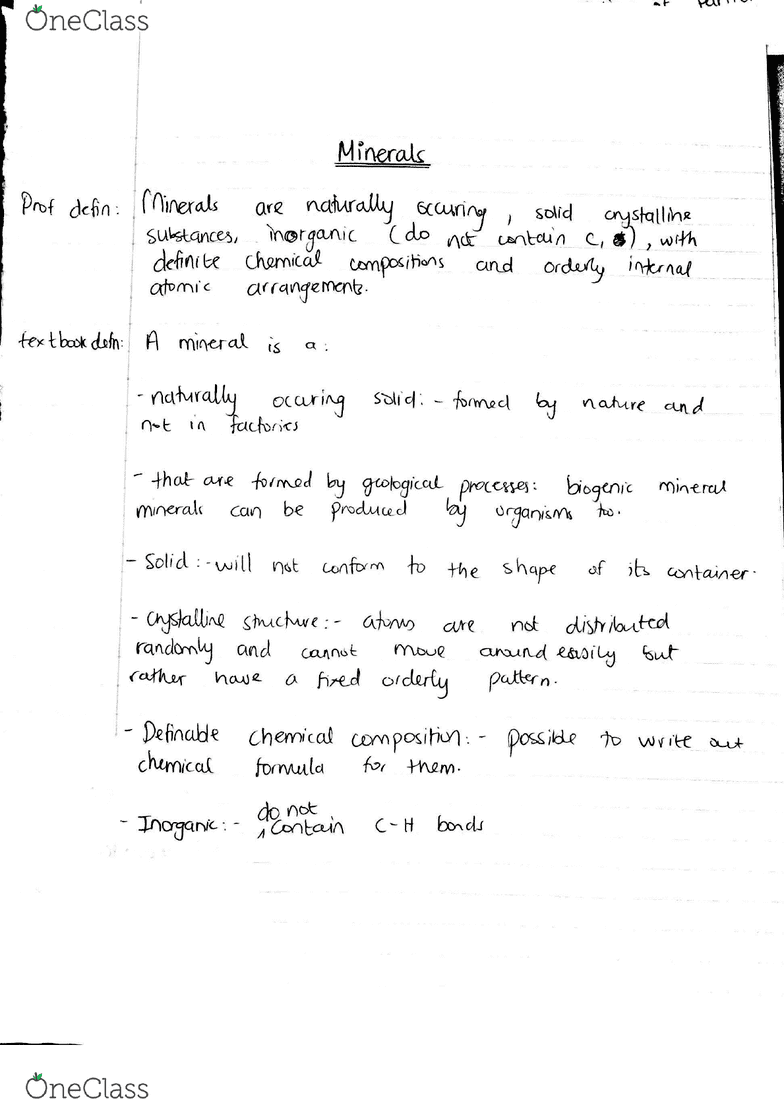 OneClass
Minerals
Prof defin: Minerals are naturally occuring, solid crystalline
substances, inorganic (do not contain C, ), with
definite chemical compositions and orderly internal
atomic arrangements.
textbook defn: A mineral is a:
- naturally occuring solid: - formed by nature and
not in factories
- that are formed by geological processes: biogenic mineral
minerals can be produced by organisms too.
- Solid: - will not conform to the shape of its container.
- Crystalline structure: - atoms are not distributed
randomly and cannot move around easily but
rather have a fixed orderly pattern.
- Definable chemical composition: - possible to write out
chemical formula for them.
- Inorganic: - do not contain C-H bonds
OneClass